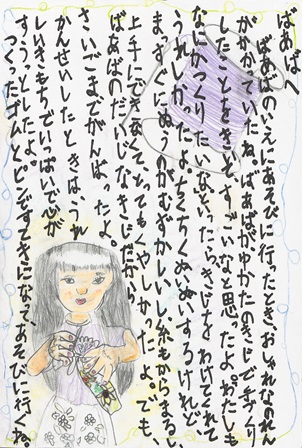 ばあばへ
ばあばのいえにあそびに行ったとき、おしゃれなのれん
がかかていたね。ばあばがゆかたのきじで手づくり
したことをきいて、すごいなと思ったよ。わたしも
なにかつくりたいな、といったらきじをわけてくれて
うれしかったよ。ちくちくぬいぬいするけれど、
まっすぐにぬうのがむずかしいし、糸もからまるし、
上手にできなくてとってもくやしかったよ。でも、
ばあばのだいじなきじだから
さいごまでがんばったよ。
かんせいしたときはうれ
しいきもちでいっぱいで心が
すうっとしたよ。
つくったゴムとピンですてきになって、あそびに行くね。